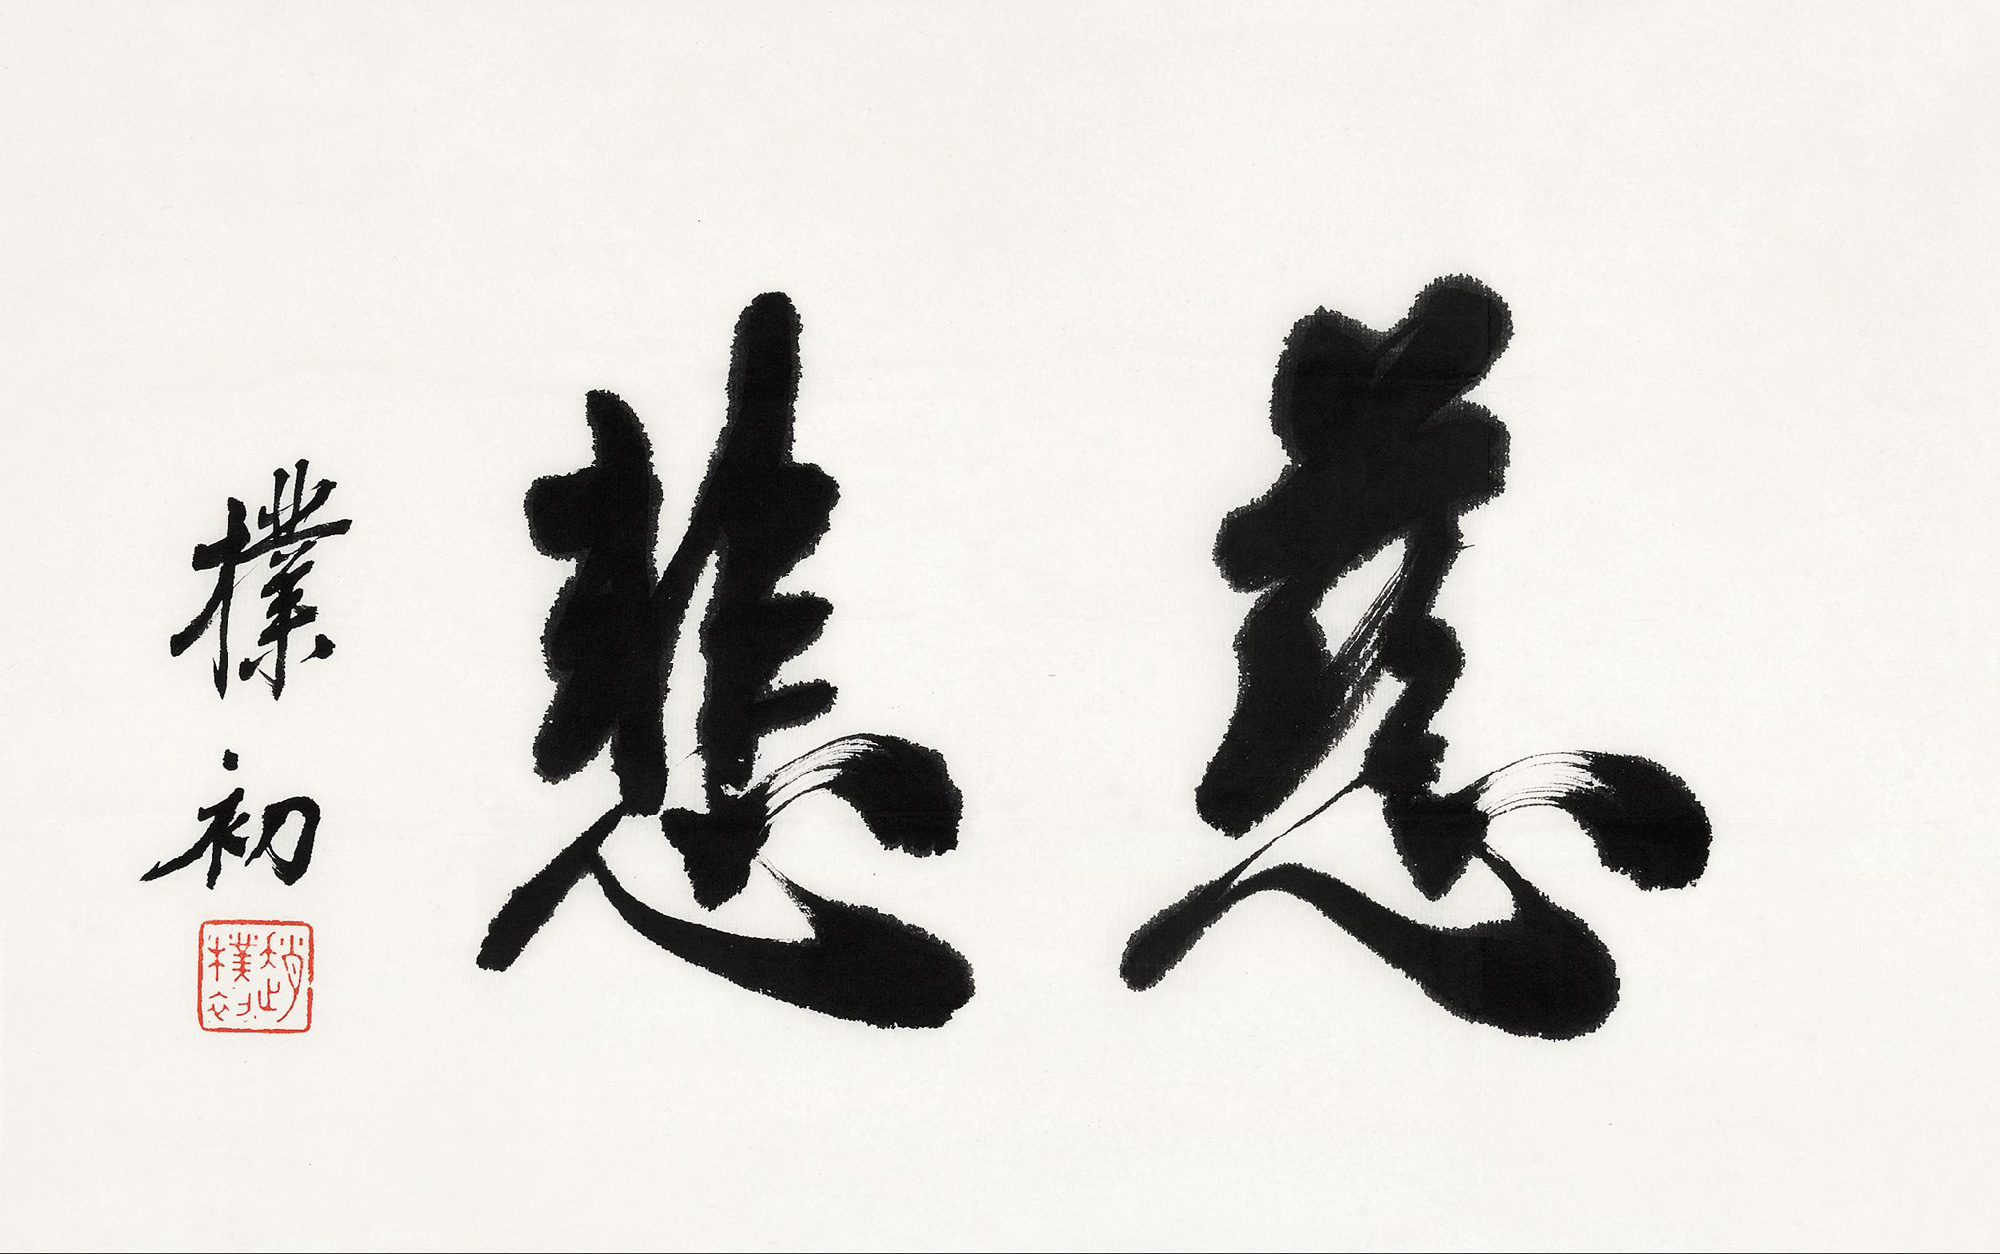 慈悲
樸初
趙樸初